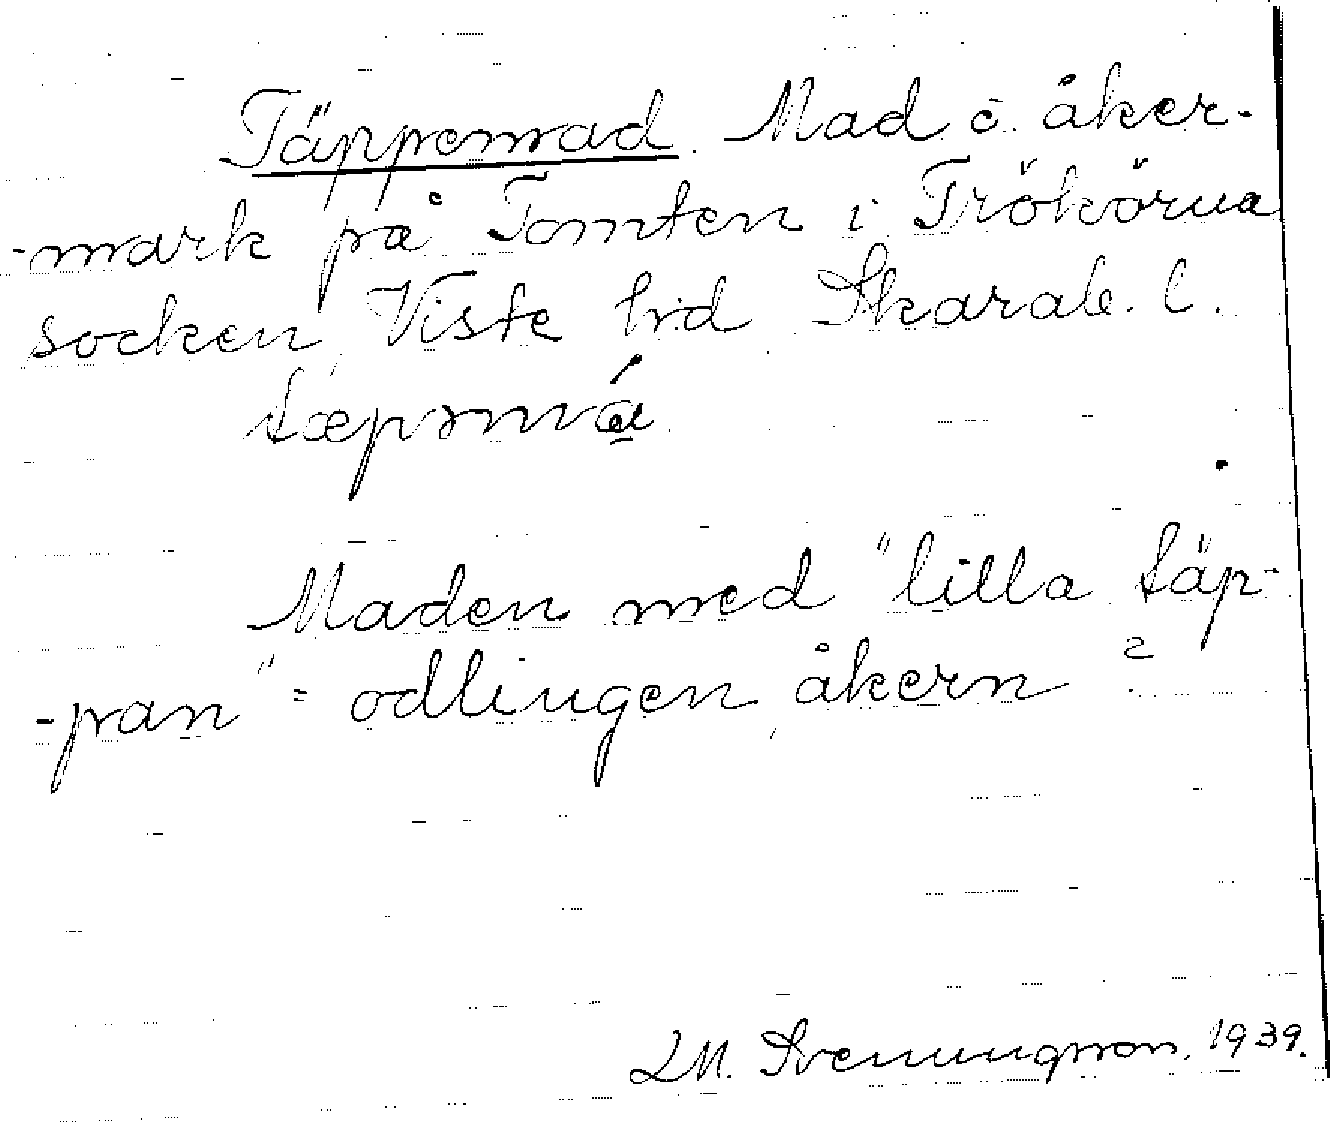 Täppemad. Mad o. åker-
-mark på Tomten i Trökörna
socken, Viste hd Skarab. l.
Maden med "lilla täp-
-pan" = odlingen, åkern
LM. Svenungsson. 1939.